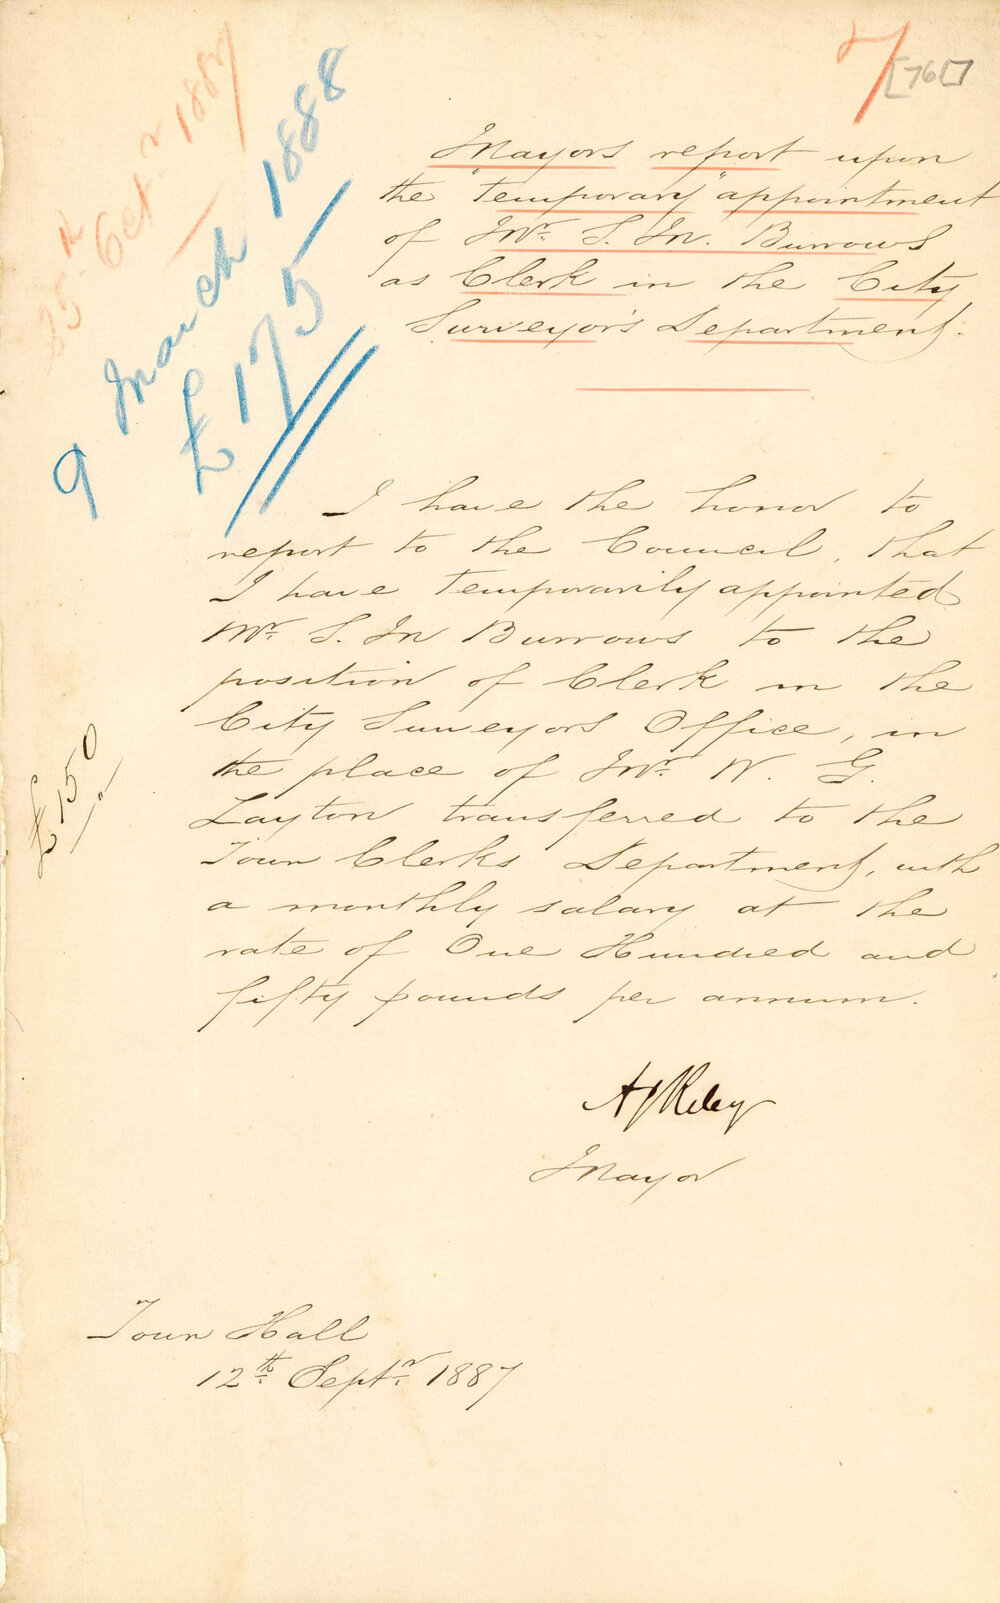 7 [761]
25th Octr 1887
9 March 1888
£175
Mayors report upon
the "temporary" appointment
of Mr. S. M. Burrows
as Clerk in the City
Surveyor's Department.
I have the honor to
report to the Council, that
I have temporarily appointed
Mr. S. M Burrows to the
position of Clerk in the
City Surveyors Office, in
the place of Mr. W. G.
Layton transferred to the
Town Clerks Department, with
a monthly salary at the
rate of One Hundred and
fifty pounds per annum.
£150
A J Riley
Mayor
Town Hall
12th Septr. 1887